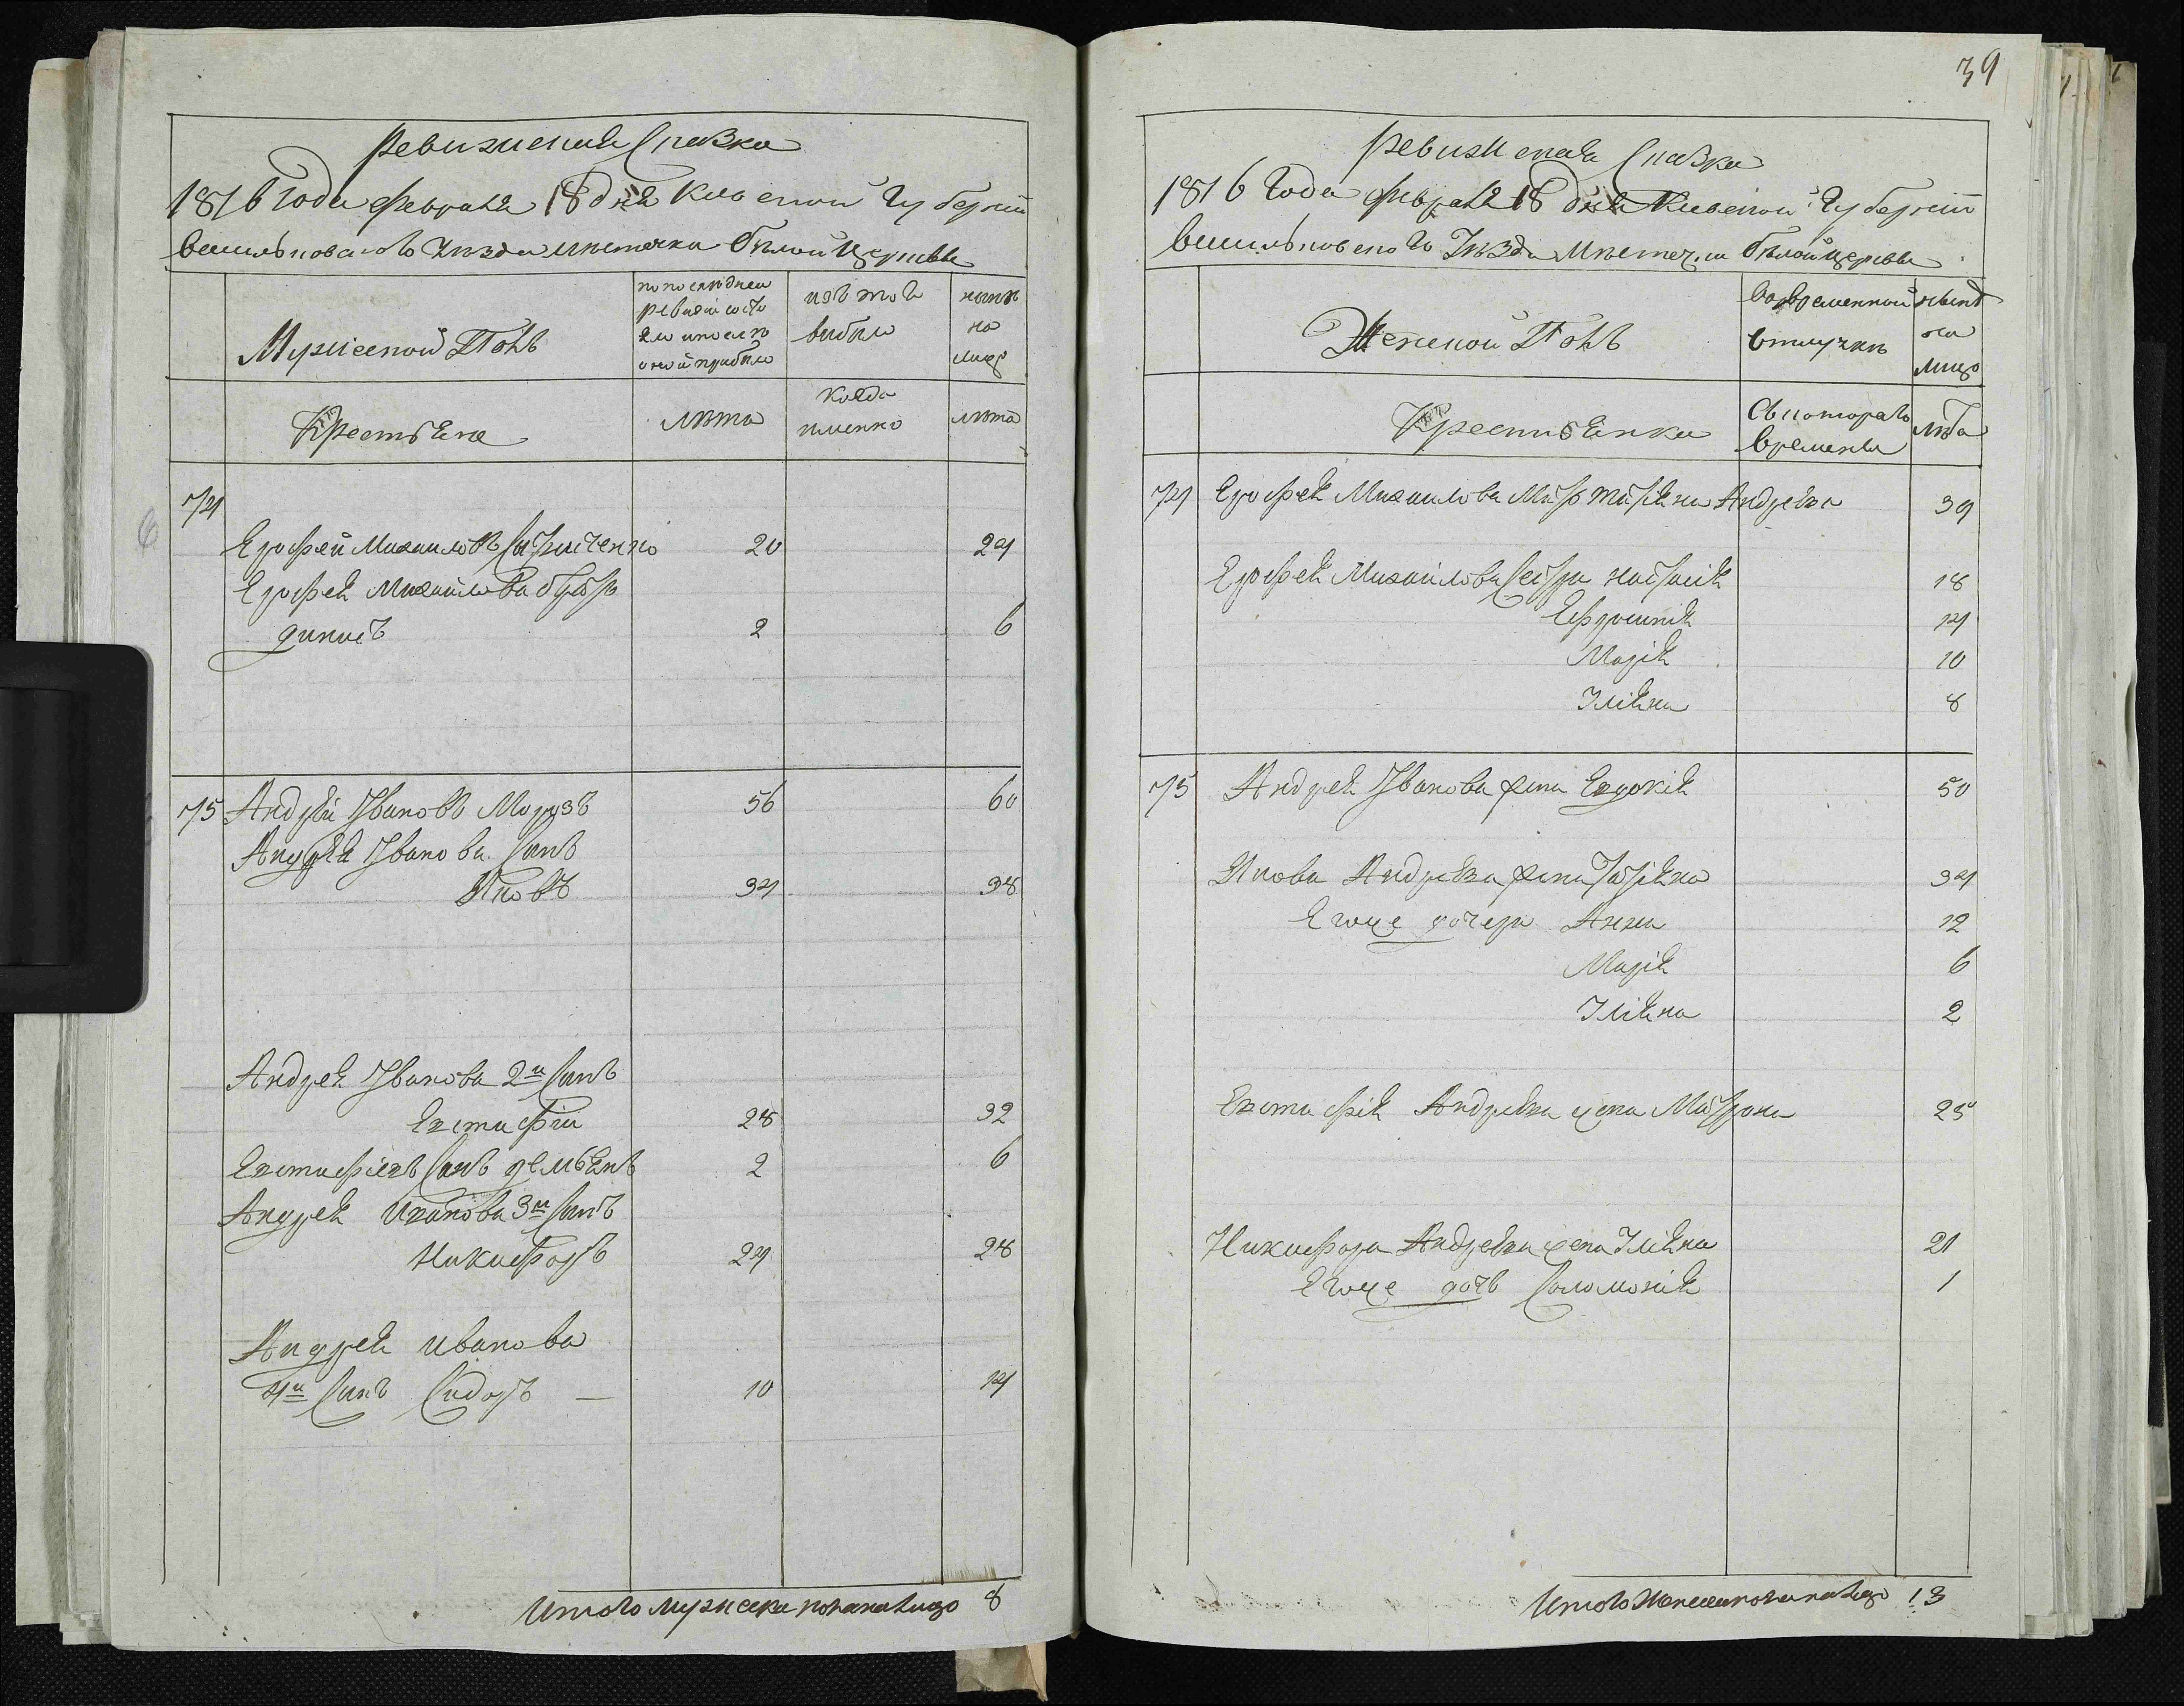 Ревизская Сказка
1816 Года Февраля 18 дня Киевской Губернии
Васильковского Уезда местечка Белой Церквы
Мужеской Полъ
по последней ревизии состояло и после оной прибыло
изъ того выбыло
ныне на лицо
Крестьяне
лета
когда именно
лета
74
Ерофей Михайловъ 20 24
Ерофея Михайлова братъ
2 6
75 Андрей Ивановъ Морозъ 56 60
Андрея Иванова сынъ
Яковъ 34 38
Андрея Иванова 2й сынъ
Евстафій 28 32
Евстафіевъ сынъ Демьянъ 2 6
Андрея Иванова 3й сынъ
Никифоръ 24 28
Андрея Иванова
4й сынъ Сидоръ — 10 14
Итого мужеска пола на лицо 8
39
Ревизская Сказка
1816 Года Февраля 18 дня Киевской Губернии
Васильковского Уезда Местеч.ка Белой Церквы
Женской Полъ
Во временной отлучке
ныне на лицо
Крестьянки
Съ которого времени
лета
74 Ерофея Михайлова Андреева 39
Ерофея Михайлова сестры Настасія 18
Ефросинія 14
Марія 10
Уліяна 8
75 Андрея Иванова жена Евдокія 50
Якова Андреева жена Татіяна 34
Егоже дочери Анна 12
Марія 6
Уліяна 2
Евстафія Андреева жена Матрона 25
Никифора Андреева жена Уліяна 21
Егоже дочь Соломонія 1
Итого Женска пола на лицо 13